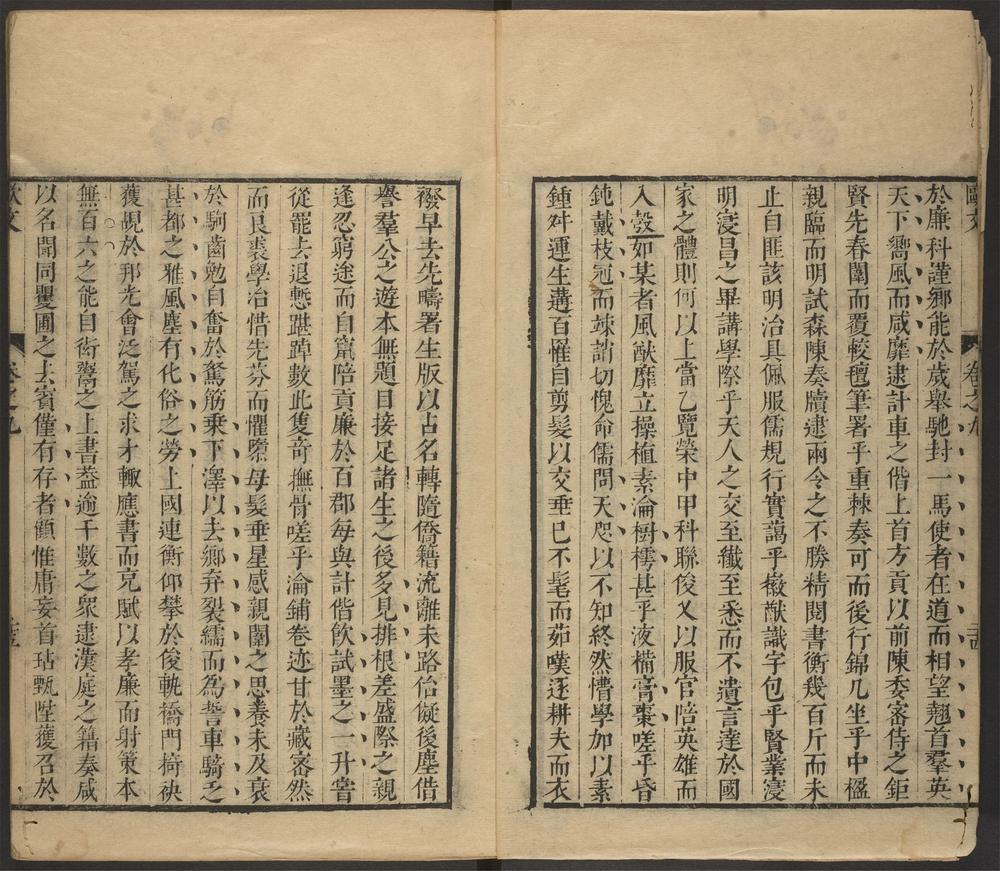 歐文 卷之九 三四
於廉科謹鄉能於歲舉馳封一馬使者在道而相望翹首羣英
天下嚮風而咸靡逮計車之偕上首方貢以前陳委審侍之鉅
賢先春闈而覆較氊筆署乎重棘奏可而後行錦几坐乎中楹
親臨而明試森陳奏牘逮兩令之不勝精閱書衡幾百斤而未
止自匪該明治具佩服儒規行實藹乎徽猷識字包乎賢業寖
明寖昌之畢講學際乎天人之交至纖至悉而不遺言達於國
家之體則何以上當乙覽榮中甲科聯俊乂以服官陪英雄而
入彀如某者風猷靡立操植素淪樹樗甚乎液樠膏棗嗟乎昏
鈍戴枝冠而竦誚切愧命儒問天咫以不知終然懵學加以素
鍾舛運生遘百罹自剪髮以交垂已不髦而茹嘆逐耕夫而衣
襏早去先疇署生版以占名轉隨僑籍流離末路佁儗後塵借
譽羣公之遊本無題目接足諸生之後多見排根差盛際之親
逢忍窮途而自竄陪貢廉於百郡每與計偕飲試墨之一升嘗
從罷去退慙踸踔數此隻奇撫骨嗟乎淪鋪卷迹甘於藏密然
而良裘學冶惜先芬而懼墮母髮垂星感親闈之思養未及衰
於駒齒勉自奮於駑筋乗下澤以去鄉弃裂繻而為誓車騎之
甚都之雅風塵有化俗之勞上國連衡仰攀於俊軌橋門掎袂
獲覘於邦光會泛駕之求才輙應書而克賦以孝廉而射策本
無百六之能自衒鬻之上書葢逾千數之衆逮漢庭之籍奏咸
以名聞同矍圃之去賓僅有存者顧惟庸妄首玷甄陞獲召於
歐文 卷之九 三五